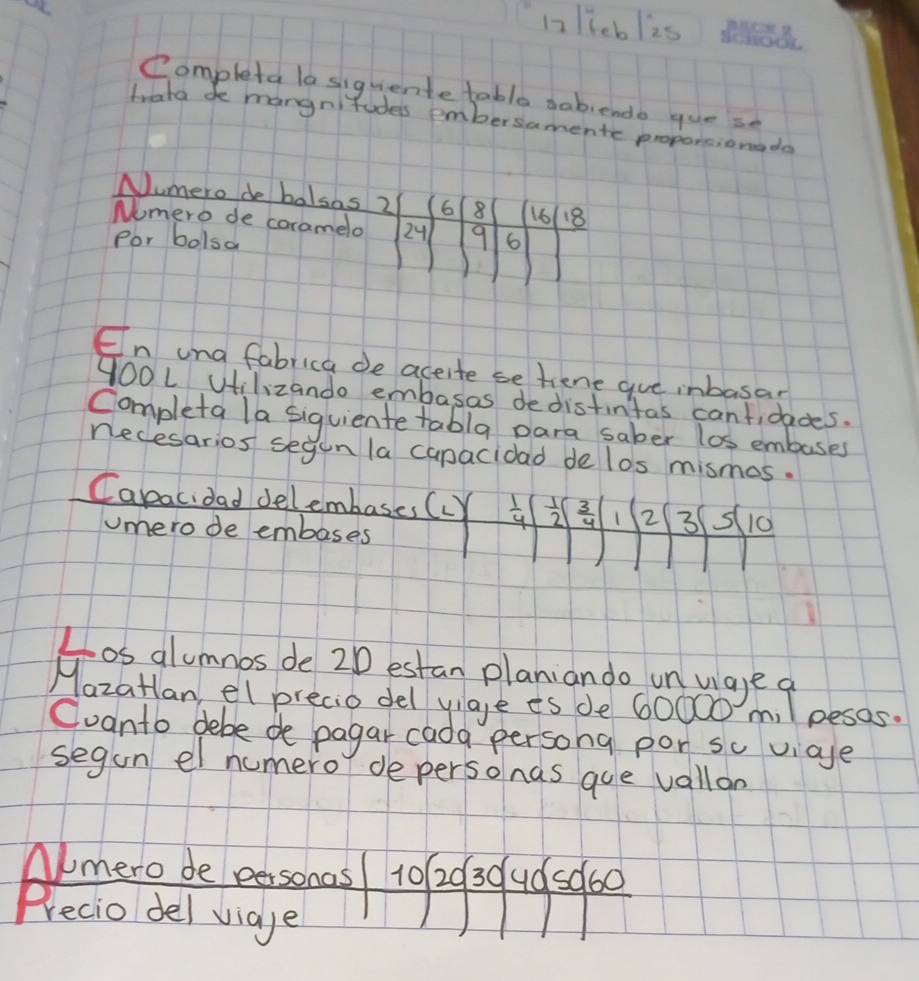 12/feb/25
Completa la siguiente tabla sabiendo que se
trata de mangnitudes embersamente proporsionado
Numero de balsas 2 | | 6 | 8 | | 16 | 18
Numero de caramelo | 24 | | 9 | 6 | |
por bolsa
En una fabrica de aceite se tiene que inbasar
400L Utilizando embasas de distintas cantidades.
Completa la siguiente tabla para saber los embases
necesarios segun la capacidad de los mismos.
Capacidad del embases (L) | 1/4 | 1/2 | 3/4 | 1 | 2 | 3 | 5 | 10
umero de embases
Los alumnos de 2D estan planiando un viaje a
Mazatlan, el precio del viaje es de 60000 mil pesos.
Cuanto debe de pagar cada persona por su viaje
segun el numero de personas que vallan
Numero de personas | 10 | 20 | 30 | 40 | 50 | 60
Precio del viaje